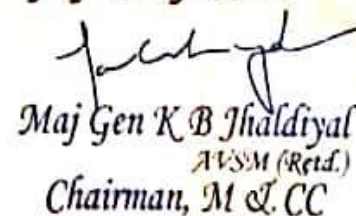 Maj Gen K B Jhaldiyal
AVSM (Retd.)
Chairman, M & CC